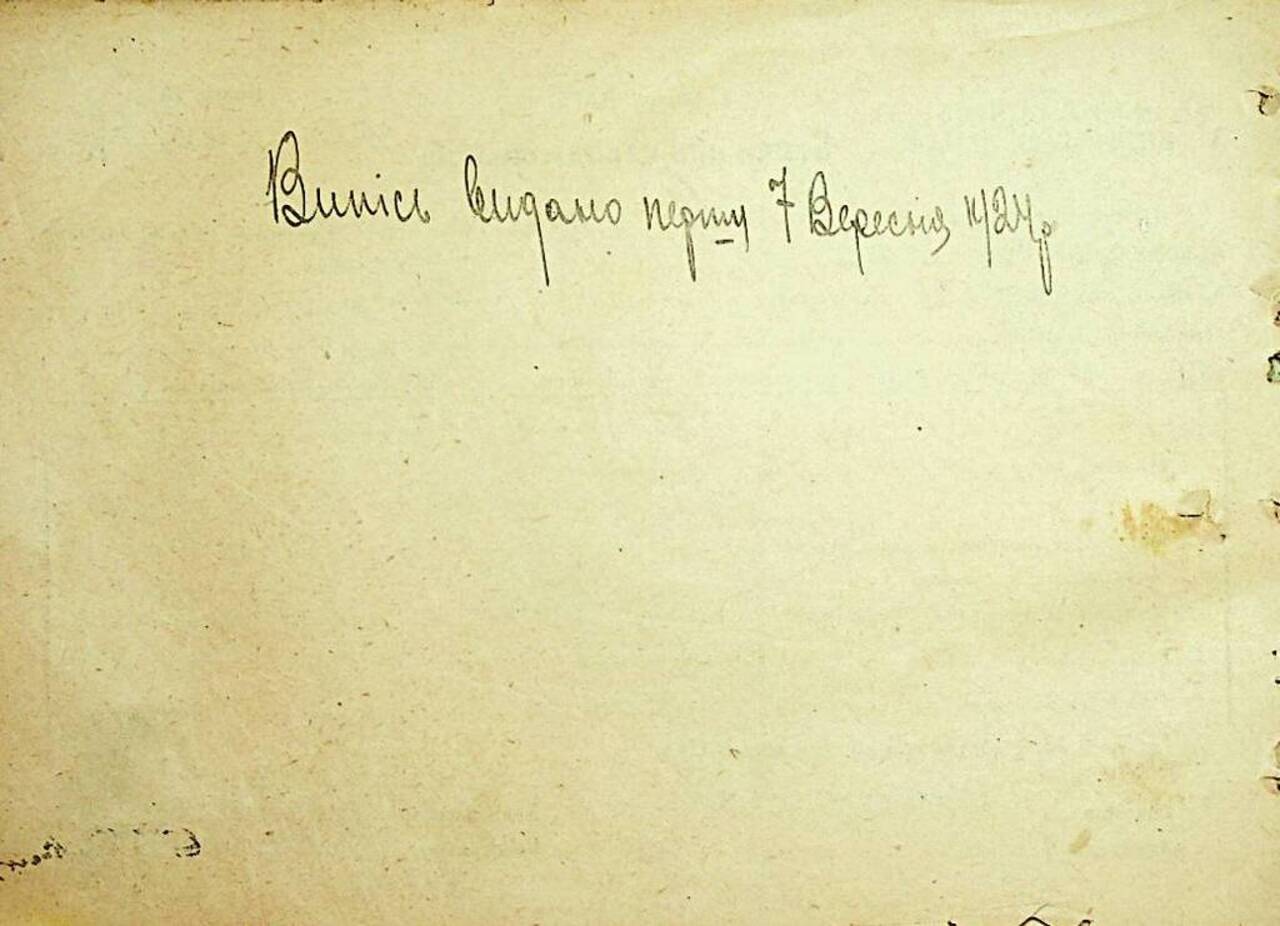 Випісь видано першу 7 Вересня 1924 р